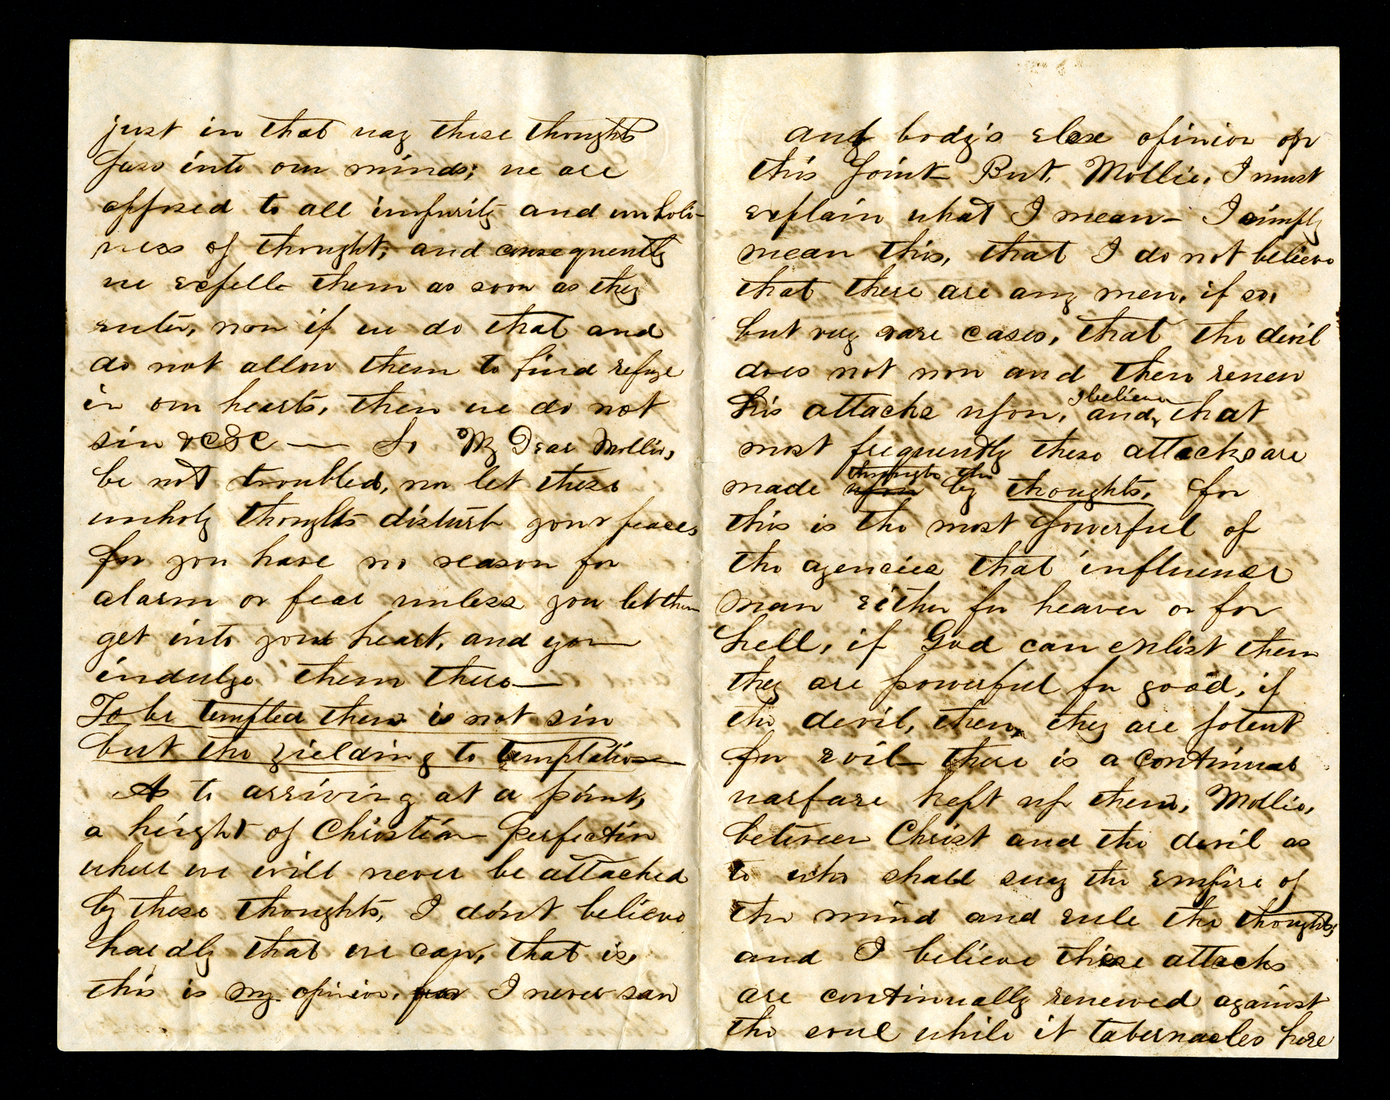 just in that way these thoughts
pass into our minds; we are
opposed to all impurity and unholi-
ness of thought, and consequently
we expell them as soon as they
enter, now if we do that and
do not allow them to find refuge
in our hearts, then we do not
sin &c&c — So My Dear Mollie,
be not troubled, nor let these
unholy thoughts disturb your peace,
for you have no reason for
alarm or fear unless you let them
get into your heart, and you
indulge them there—
To be tempted then is not sin
but the yielding to temptation—
As to arriving at a point,
a height of Christian perfection
where we will never be attacked
by these thoughts, I don't believe
hardly that we can, that is,
this is my opinion, for I never saw
any body's else opinion on
this point But, Mollie, I must
explain what I mean— I simply
mean this, that I do not believe
that there are any men, if so,
but very rare cases, that the devil
does not now and then renew
his attacks upon, and, I believe that
most frequently these attacks are
made upon through the by thoughts, for
this is the most powerful of
the agencies that influence
man either for heaven or for
hell, if God can enlist them
they are powerful for good, if
the devil, then, they are potent
for evil— there is a continual
warfare kept up then, Mollie,
between Christ and the devil as
to who shall sway the empire of
the mind and rule the thoughts,
and I believe these attacks
are continually renewed against
the soul while it tabernacles here